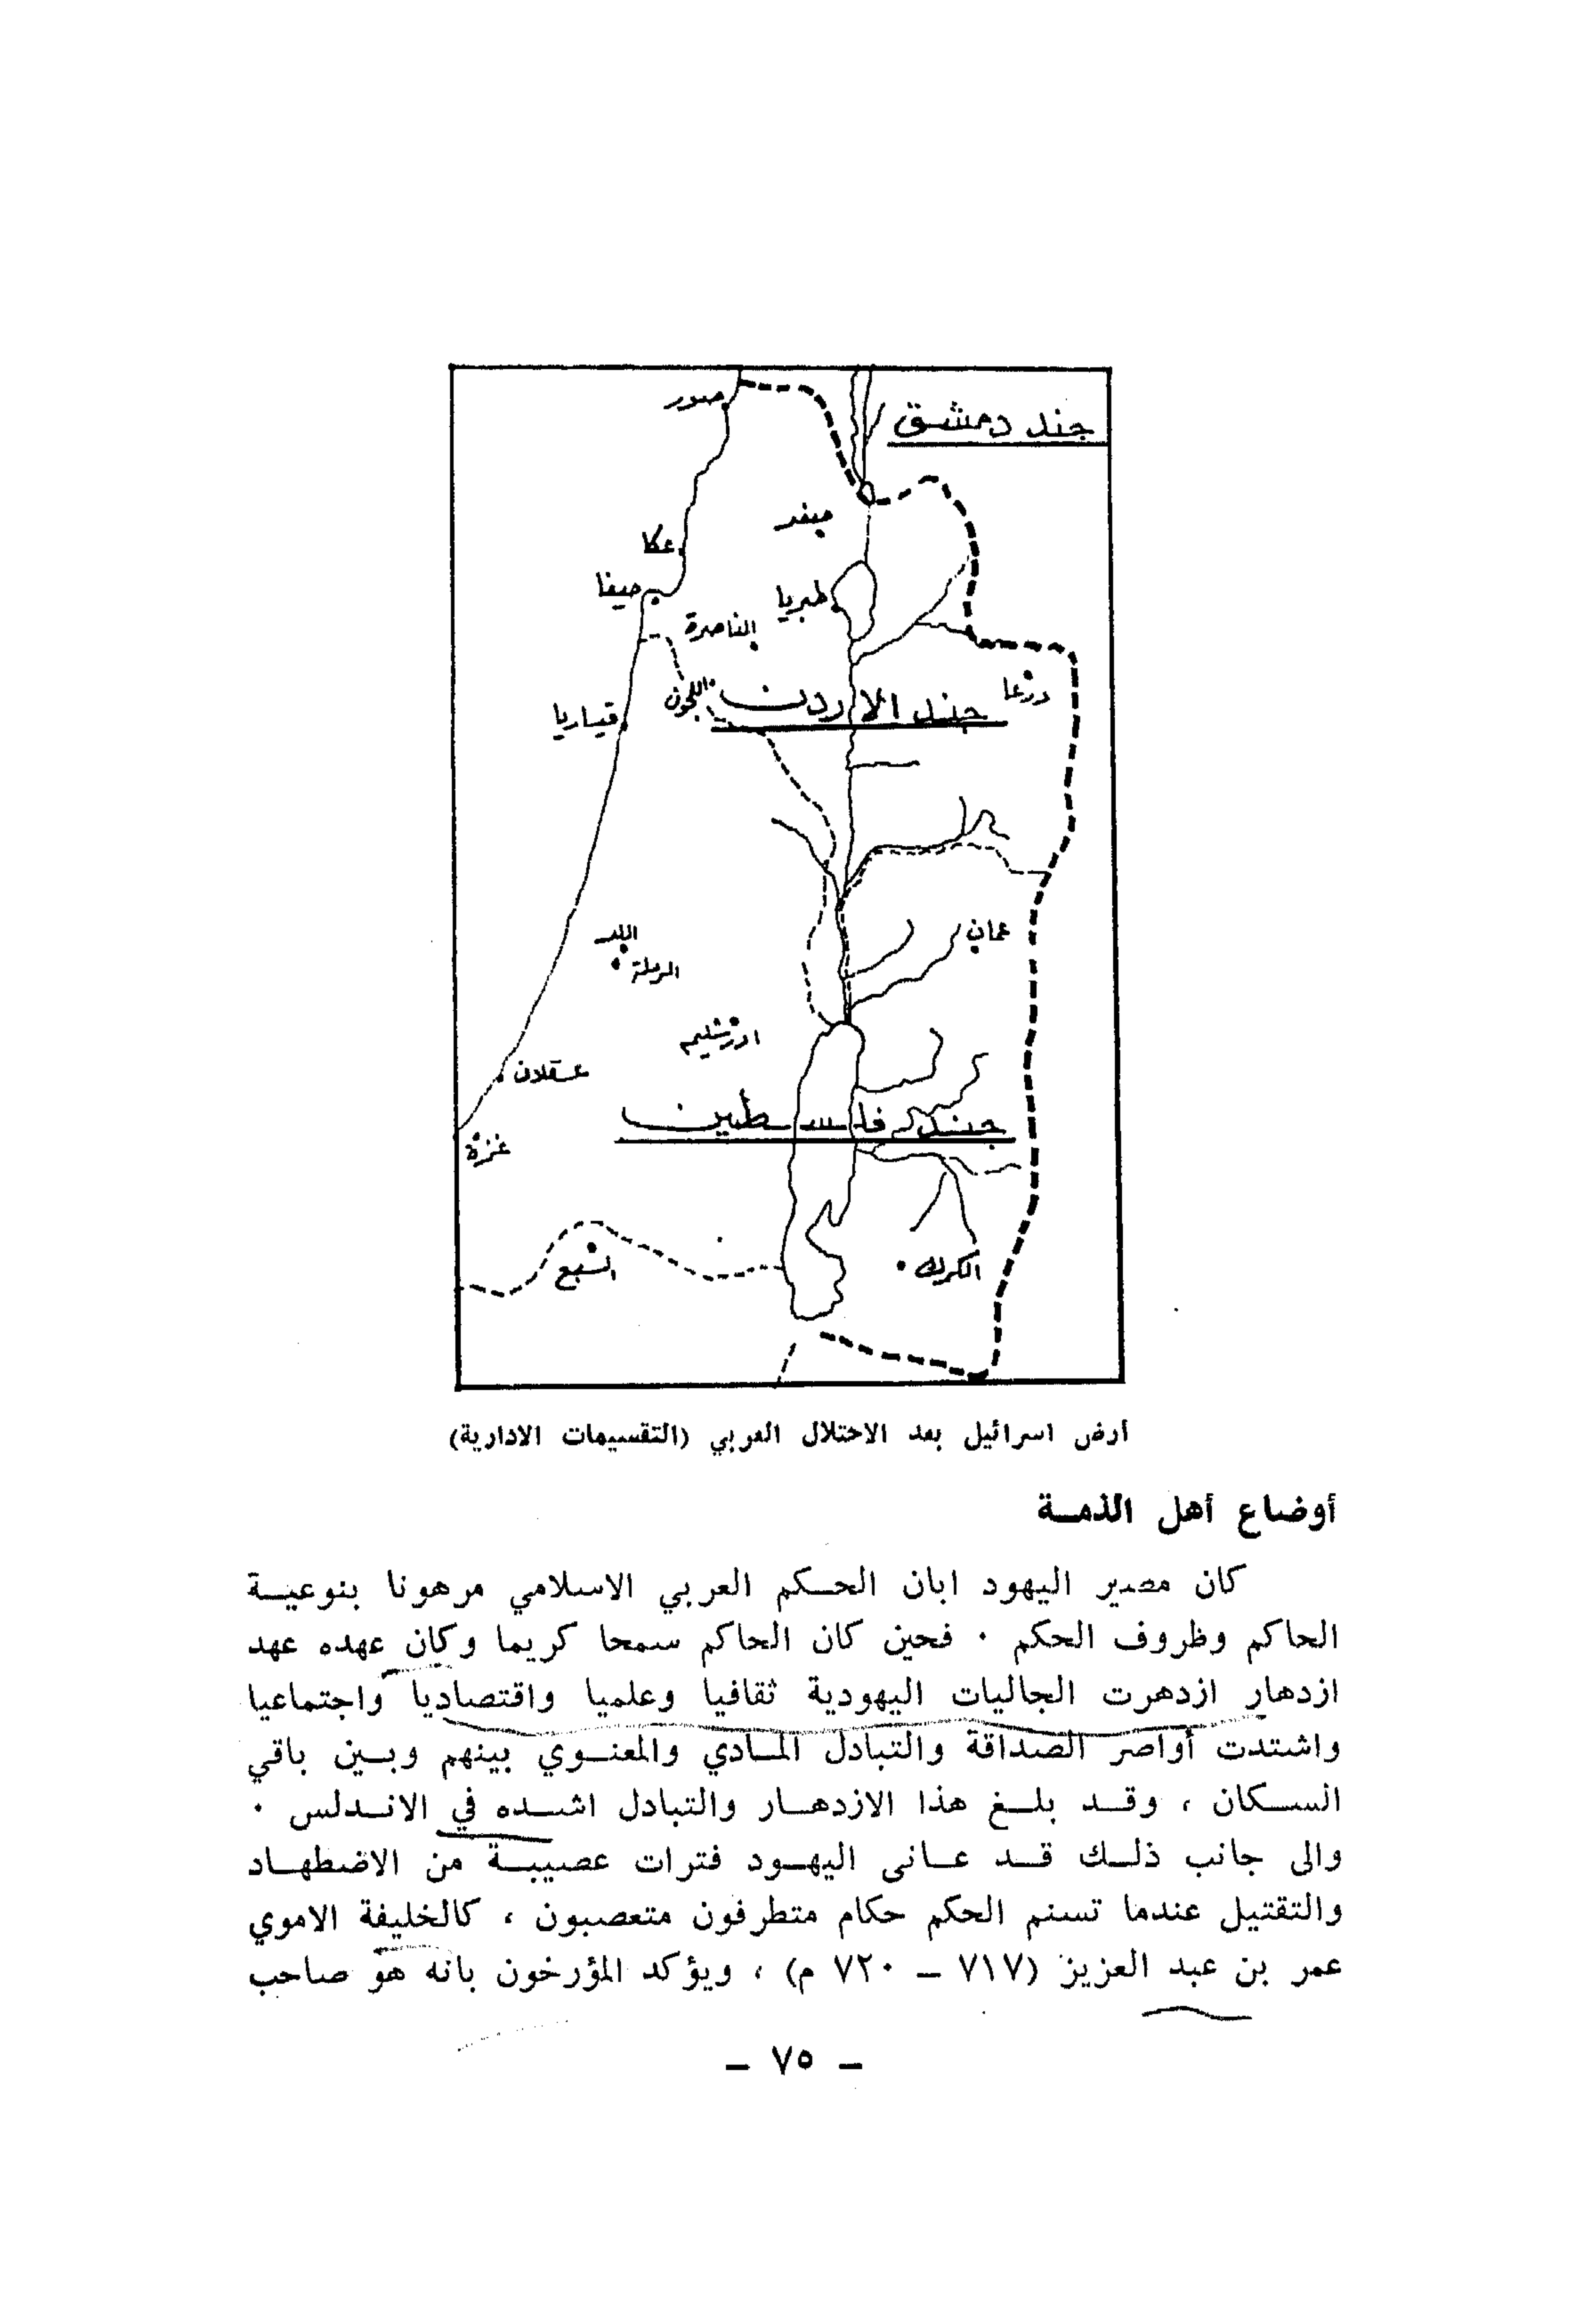 جند دمشق
صور
صفد
عكا
حيفا
طبريا
الناصرة
درعا
اللجون
جند الاردن
قيساريا
عمان
اللد
الرملة
اورشليم
عسقلان
جند فلسطين
غزة
السبع
الكرك
أرض اسرائيل بعد الاحتلال العربي (التقسيمات الادارية)
أوضاع أهل الذمــة
كان مصير اليهود ابان الحــكم العربي الاسلامي مرهونا بنوعيــة
الحاكم وظروف الحكم ٠ فحين كان الحاكم سمحا كريما وكان عهده عهد
ازدهار ازدهرت الجاليات اليهودية ثقافيا وعلميا واقتصاديا واجتماعيا
واشتدت أواصر الصداقة والتبادل المــادي والمعنــوي بينهم وبــين باقي
الســكان ، وقــد بلــغ هذا الازدهــار والتبادل اشــده في الانــدلس ٠
والى جانب ذلــك قــد عــانى اليهــود فترات عصيبــة من الاضطهــاد
والتقتيل عندما تسنم الحكم حكام متطرفون متعصبون ، كالخليفة الاموي
عمر بن عبد العزيز (٧١٧ – ٧٢٠ م) ، ويؤكد المؤرخون بانه هو صاحب
– ٧٥ –